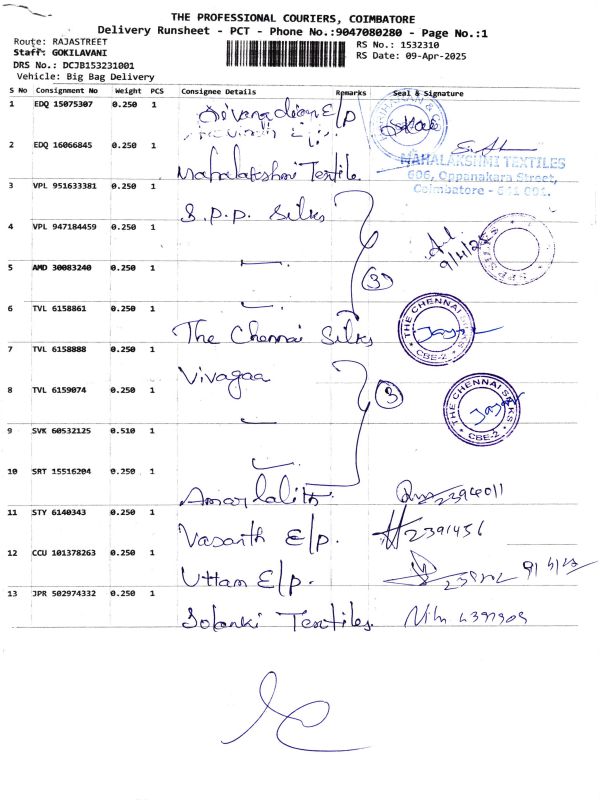 THE PROFESSIONAL COURIERS, COIMBATORE
Delivery Runsheet - PCT - Phone No.:9047080280 - Page No.:1
Route: RAJASTREET
Staff: GOKILAVANI
DRS No.: DCJB153231001
Vehicle: Big Bag Delivery
RS No.: 1532310
RS Date: 09-Apr-2025
S No Consignment No Weight PCS Consignee Details Remarks Seal & Signature
1 EDQ 15075307 0.250 1 E/p
2 EDQ 16066845 0.250 1 Mahalakshmi Textile
MAHALAKSHMI TEXTILES
606, Oppanakara Street,
Coimbatore - 641 001.
3 VPL 951633381 0.250 1 S.P.P. Silks
4 VPL 947184459 0.250 1
5 AMD 30083240 0.250 1
3
6 TVL 6158861 0.250 1 The Chennai Silks
THE CHENNAI SILKS
CBE-2
7 TVL 6158888 0.250 1 Vivagaa
8 TVL 6159074 0.250 1
3
THE CHENNAI SILKS
CBE-2
9 SVK 60532125 0.510 1
10 SRT 15516204 0.250 1 Amarlalith
11 STY 6140343 0.250 1 Vasanth E/p. 2391456
12 CCU 101378263 0.250 1 Uttam E/p.
13 JPR 502974332 0.250 1 Solanki Textiles.